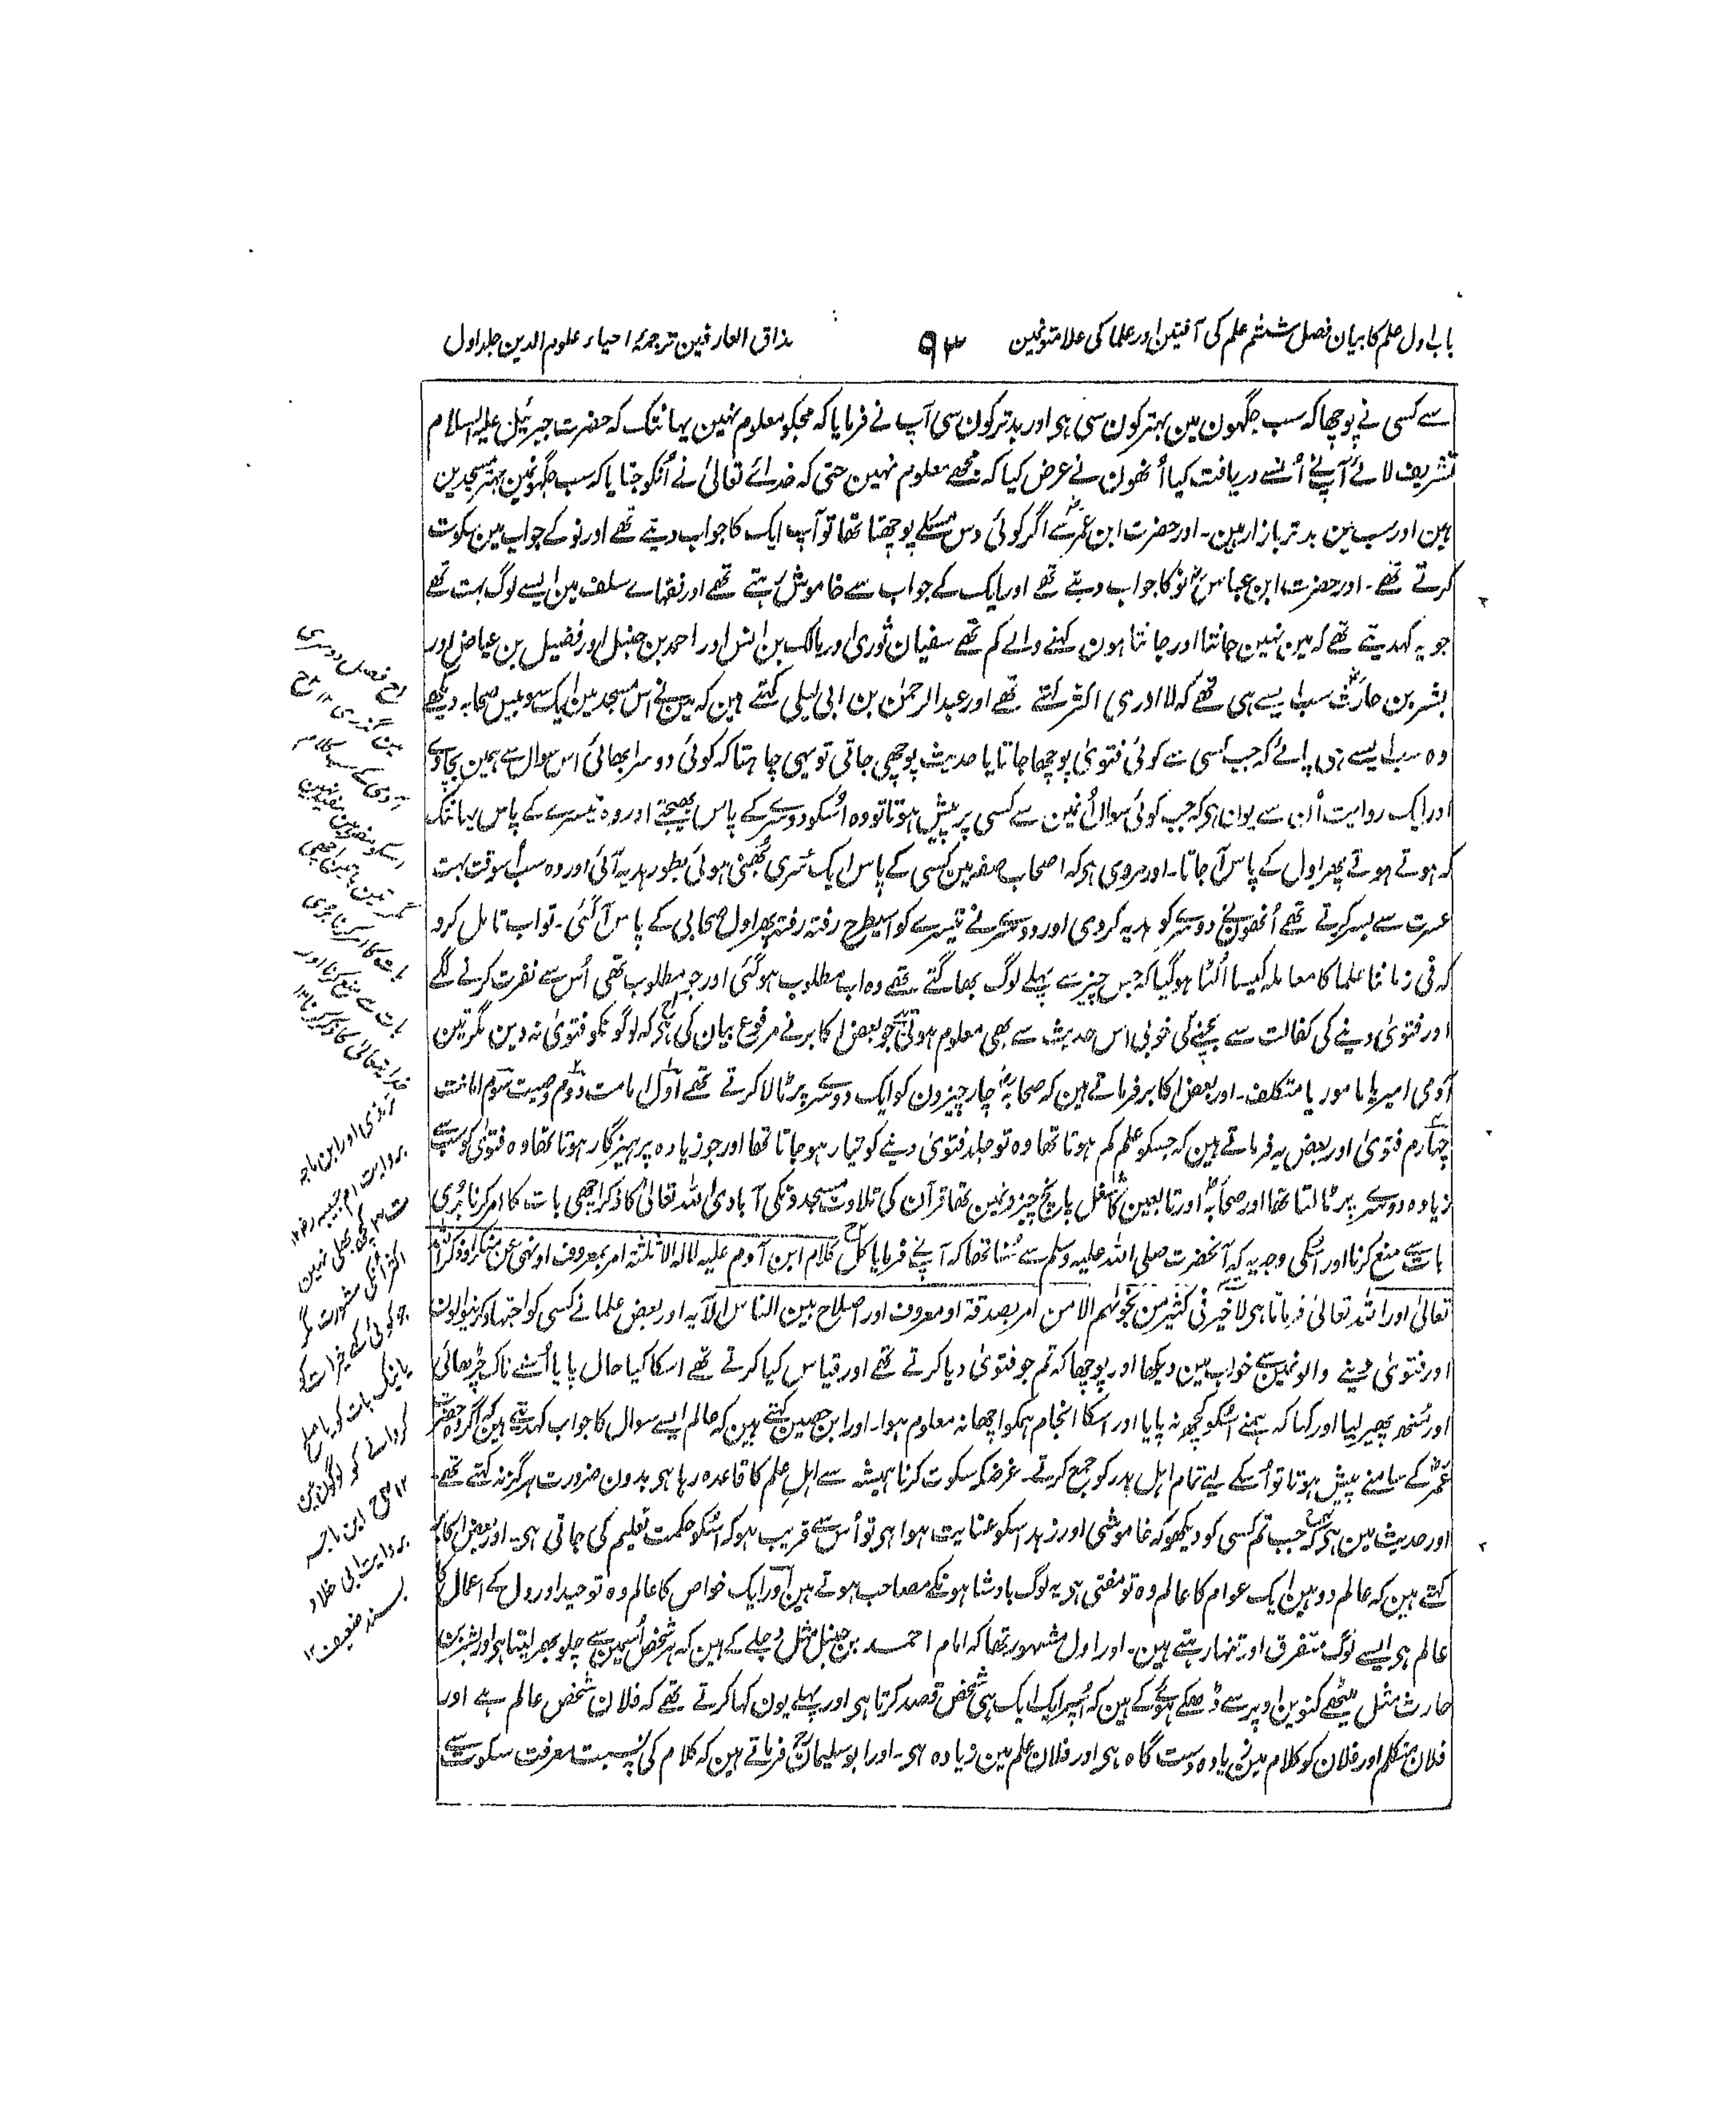 باب اول علم کا بیان فصل ششم علم کی آفتین اور علما کی علامتونمین
۹۳
مذاق العارفین ترجمۂ احیاء علوم الدین جلد اول
سے کسی نے پوچھا کہ سب جگہون مین بہتر کون سی ہی اور بدتر کون سی آپ نے فرمایا کہ مجکو معلوم نہین یہانتک کہ حضرت جبرئیل علیہ السلام
تشریف لائے آپنے اُنسے دریافت کیا اُنھون نے عرض کیا کہ مجھے معلوم نہین حتی کہ خداے تعالیٰ نے اُنکو جتایا کہ سب جگہونمین بہتر مسجدین
ہین اور سب مین بدتر بازار ہین۔ اور حضرت ابن عمرؓ سے اگر کوئی دس مسئلے پوچھتا تھا تو آپ ایک کا جواب دیتے تھے اور نو کے جواب مین سکوت
کرتے تھے۔ اور حضرت ابن عباسؓ نو کا جواب دیتے تھے اور ایک کے جواب سے خاموش رہتے تھے اور فقہاے سلف مین ایسے لوگ بہت تھے
جو یہ کہدیتے تھے کہ مین نہین جانتا اور جانتا ہون کہنے والے کم تھے سفیان ثوری اور مالک بن انس اور احمد بن حنبل اور فضیل بن عیاض اور
بشر بن حارثؒ سب ایسے ہی تھے کہ لا ادری اکثر کہتے تھے اور عبد الرحمٰن بن ابی لیلی کہتے ہین کہ مینے اس مسجد مین ایک سو بیس صحابہ دیکھے
وہ سب ایسے ہی پائے کہ جب کسی سے کوئی فتویٰ پوچھا جاتا یا حدیث پوچھی جاتی تو یہی چاہتا کہ کوئی دوسرا بھائی اس سوال سے ہمین بچاوے
اور ایک روایت اُن سے یون ہی کہ جب کوئی سوال اُنمین سے کسی پر پیش ہوتا تو وہ اُسکو دوسرے کے پاس بھیجتے اور وہ تیسرے کے پاس یہانتک
کہ ہوتے ہوتے پھر اول کے پاس آجاتا۔ اور مروی ہی کہ اصحاب صفہ مین کسی کے پاس ایک سری بھُنی ہوئی بطور ہدیہ آئی اور وہ سب اُسوقت بہت
عسرت سے بسر کرتے تھے اُنھون نے دوسرے کو ہدیہ کردی اور دوسرے نے تیسرے کو اسیطرح رفتہ رفتہ پھر اول صحابی کے پاس آگئی۔ تو اب تامل کرو
کہ فی زماننا علما کا معاملہ کیسا اُلٹا ہوگیا کہ جس چیز سے پہلے لوگ بھاگتے تھے وہ اب مطلوب ہوگئی اور جو مطلوب تھی اُس سے نفرت کرنے لگے
اور فتویٰ دینے کی کفالت سے بچنے کی خوبی اس حدیث سے بھی معلوم ہوتی ہی جو بعض اکابر نے مرفوع بیان کی ہی کہ لوگونکو فتویٰ نہ دین مگر تین
آدمی امیر یا مامور یا متکلف۔ اور بعض اکابر فرماتے ہین کہ صحابہؓ چار چیزون کو ایک دوسرے پر ٹالا کرتے تھے اول امامت دوم وصیت سوم امانت
چہارم فتویٰ اور بعض یہ فرماتے ہین کہ جسکو علم کم ہوتا تھا وہ تو جلد فتویٰ دینے کو تیار ہوجاتا تھا اور جو زیادہ پرہیزگار ہوتا تھا وہ فتویٰ کو سب سے
زیادہ دوسرے پر ٹالتا تھا اور صحابہؓ اور تابعین کا شغل پانچ چیزونمین تھا قرآن کی تلاوت مسجدونکی آبادی اللہ تعالیٰ کا ذکر اچھی بات کا امر کرنا بُری
بات سے منع کرنا اور اسکی وجہ یہ کہ آنحضرت صلی اللہ علیہ وسلم سے سُنا تھا کہ آپنے فرمایا کل کلام ابن آدم علیہ لا لہ الا ثلثۃ امر بمعروف او نہی عن منکر او ذکر اللہ
تعالیٰ اور اللہ تعالیٰ فرماتا ہی لا خیر فی کثیر من نجوٰہم الا من امر بصدقۃ او معروف او اصلاح بین الناس الآیہ اور بعض علما نے کسی کو اجتہاد کرنیوالون
اور فتویٰ دینے والونمین سے خواب مین دیکھا اور پوچھا کہ تم جو فتویٰ دیا کرتے تھے اور قیاس کیا کرتے تھے اسکا کیا حال پایا اُسنے ناک چڑھائی
اور مُنھ پھیر لیا اور کہا کہ ہمنے اُسکو کچھ نہ پایا اور اسکا انجام ہمکو اچھا نہ معلوم ہوا۔ اور ابن حصین کہتے ہین کہ عالم ایسے سوال کا جواب کہدیتے ہین کہ اگر وہ حضرت
عمرؓ کے سامنے پیش ہوتا تو اُسکے لیے تمام اہل بدر کو جمع کرتے۔ غرضکہ سکوت کرنا ہمیشہ سے اہل علم کا قاعدہ رہا ہی بدون ضرورت ہرگز نہ کہتے تھے۔
اور حدیث مین ہی کہ جب تم کسی کو دیکھو کہ خاموشی اور زہد اسکو عنایت ہوا ہی تو اُس سے قریب ہو کہ اُسکو حکمت تعلیم کی جاتی ہی۔ اور بعض اکابر
کہتے ہین کہ عالم دو ہین ایک عوام کا عالم وہ تو مفتی ہی یہ لوگ بادشاہونکے مصاحب ہوتے ہین اور ایک خواص کا عالم وہ توحید اور دل کے اعمال کا
عالم ہی ایسے لوگ متفرق اور تنہا رہتے ہین۔ اور اول مشہور تھا کہ امام احمد بن حنبل مثل دجلے کے ہین کہ ہر شخص اُسمین سے چلو بھر لیتا ہی اور بشر بن
حارث مثل میٹھے کنوین اوپر سے ڈھکے ہوئے کے ہین کہ اُسپر ایک ایک ہی شخص قصد کرتا ہی اور پہلے یون کہا کرتے تھے کہ فلان شخص عالم ہے اور
فلان متکلم اور فلان کو کلام مین زیادہ دست گاہ ہی اور فلان علم مین زیادہ ہی۔ اور ابو سلیمانؒ فرماتے ہین کہ کلام کی بہ نسبت معرفت سکوت سے
فصل دوسری
مین گذری ۱۲
آدمی کے سب کلام
اسکو مضر ہین مفید نہین
مگر تین باتین اچھی
بات کا امر کرنا بری
بات سے منع کرنا اور
خدایتعالیٰ کا ذکر کرنا ۱۲
ترمذی اور ابن ماجہ
بروایت ام حبیبہ رض ۱۲
کچھ بھلی نہین
اکثر اُنکی مشورت مگر
جو کوئی کہے خیرات کو
یا نیک بات کو یا صلح
کروانے کو لوگون مین
۱۲ ابن ماجہ
بروایت ابی خلاد
بسند ضعیف ۱۲